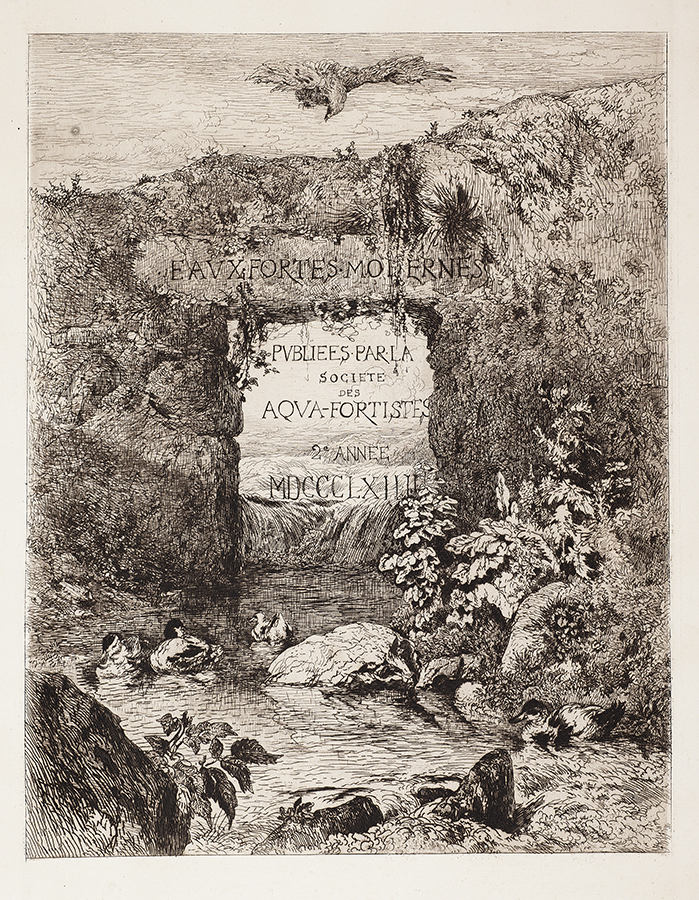 EAVX·FORTES·MODERNES
PVBLIEES·PAR·LA
SOCIETE
DES
AQVA-FORTISTES
2e ANNÉE
MDCCCLXIIII